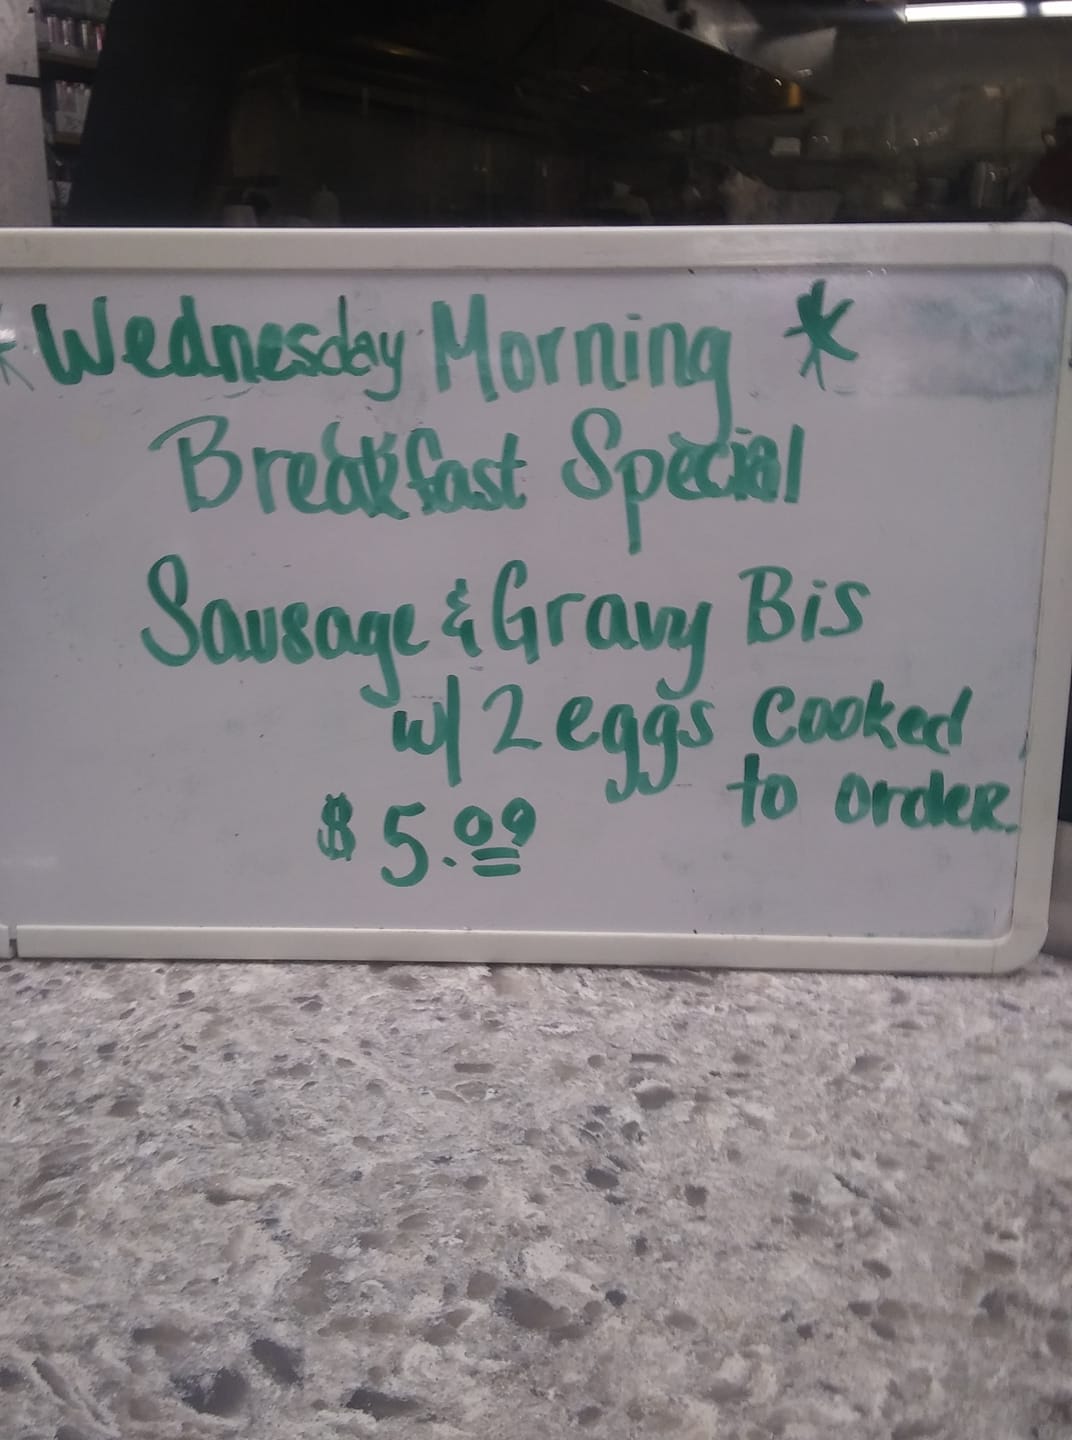 * Wednesday Morning *
Breakfast Special
Sausage & Gravy Bis
w/ 2 eggs cooked
to order.
$5.09